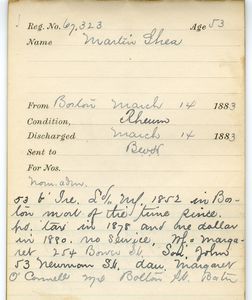 Reg. No. 67,323 Age 53
Name Martin Shea
From Boston March 14 1883
Condition, Rheum
Discharged March 14 1883
Sent to
For Nos.
Nom. adm.
53 b' Ire. 1852 in Bos-
ton most of the time since.
no. tax in 1878 and one dollar
in 1880. no service, W. = Marga-
ret 254 St. Son, John
53 Neuman St. dau, Margaret
O'Connell St. Batn